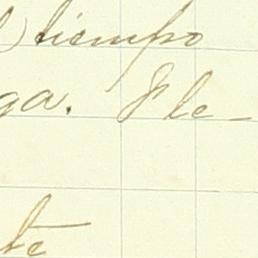 ) tiempo
ga. Ple-
te